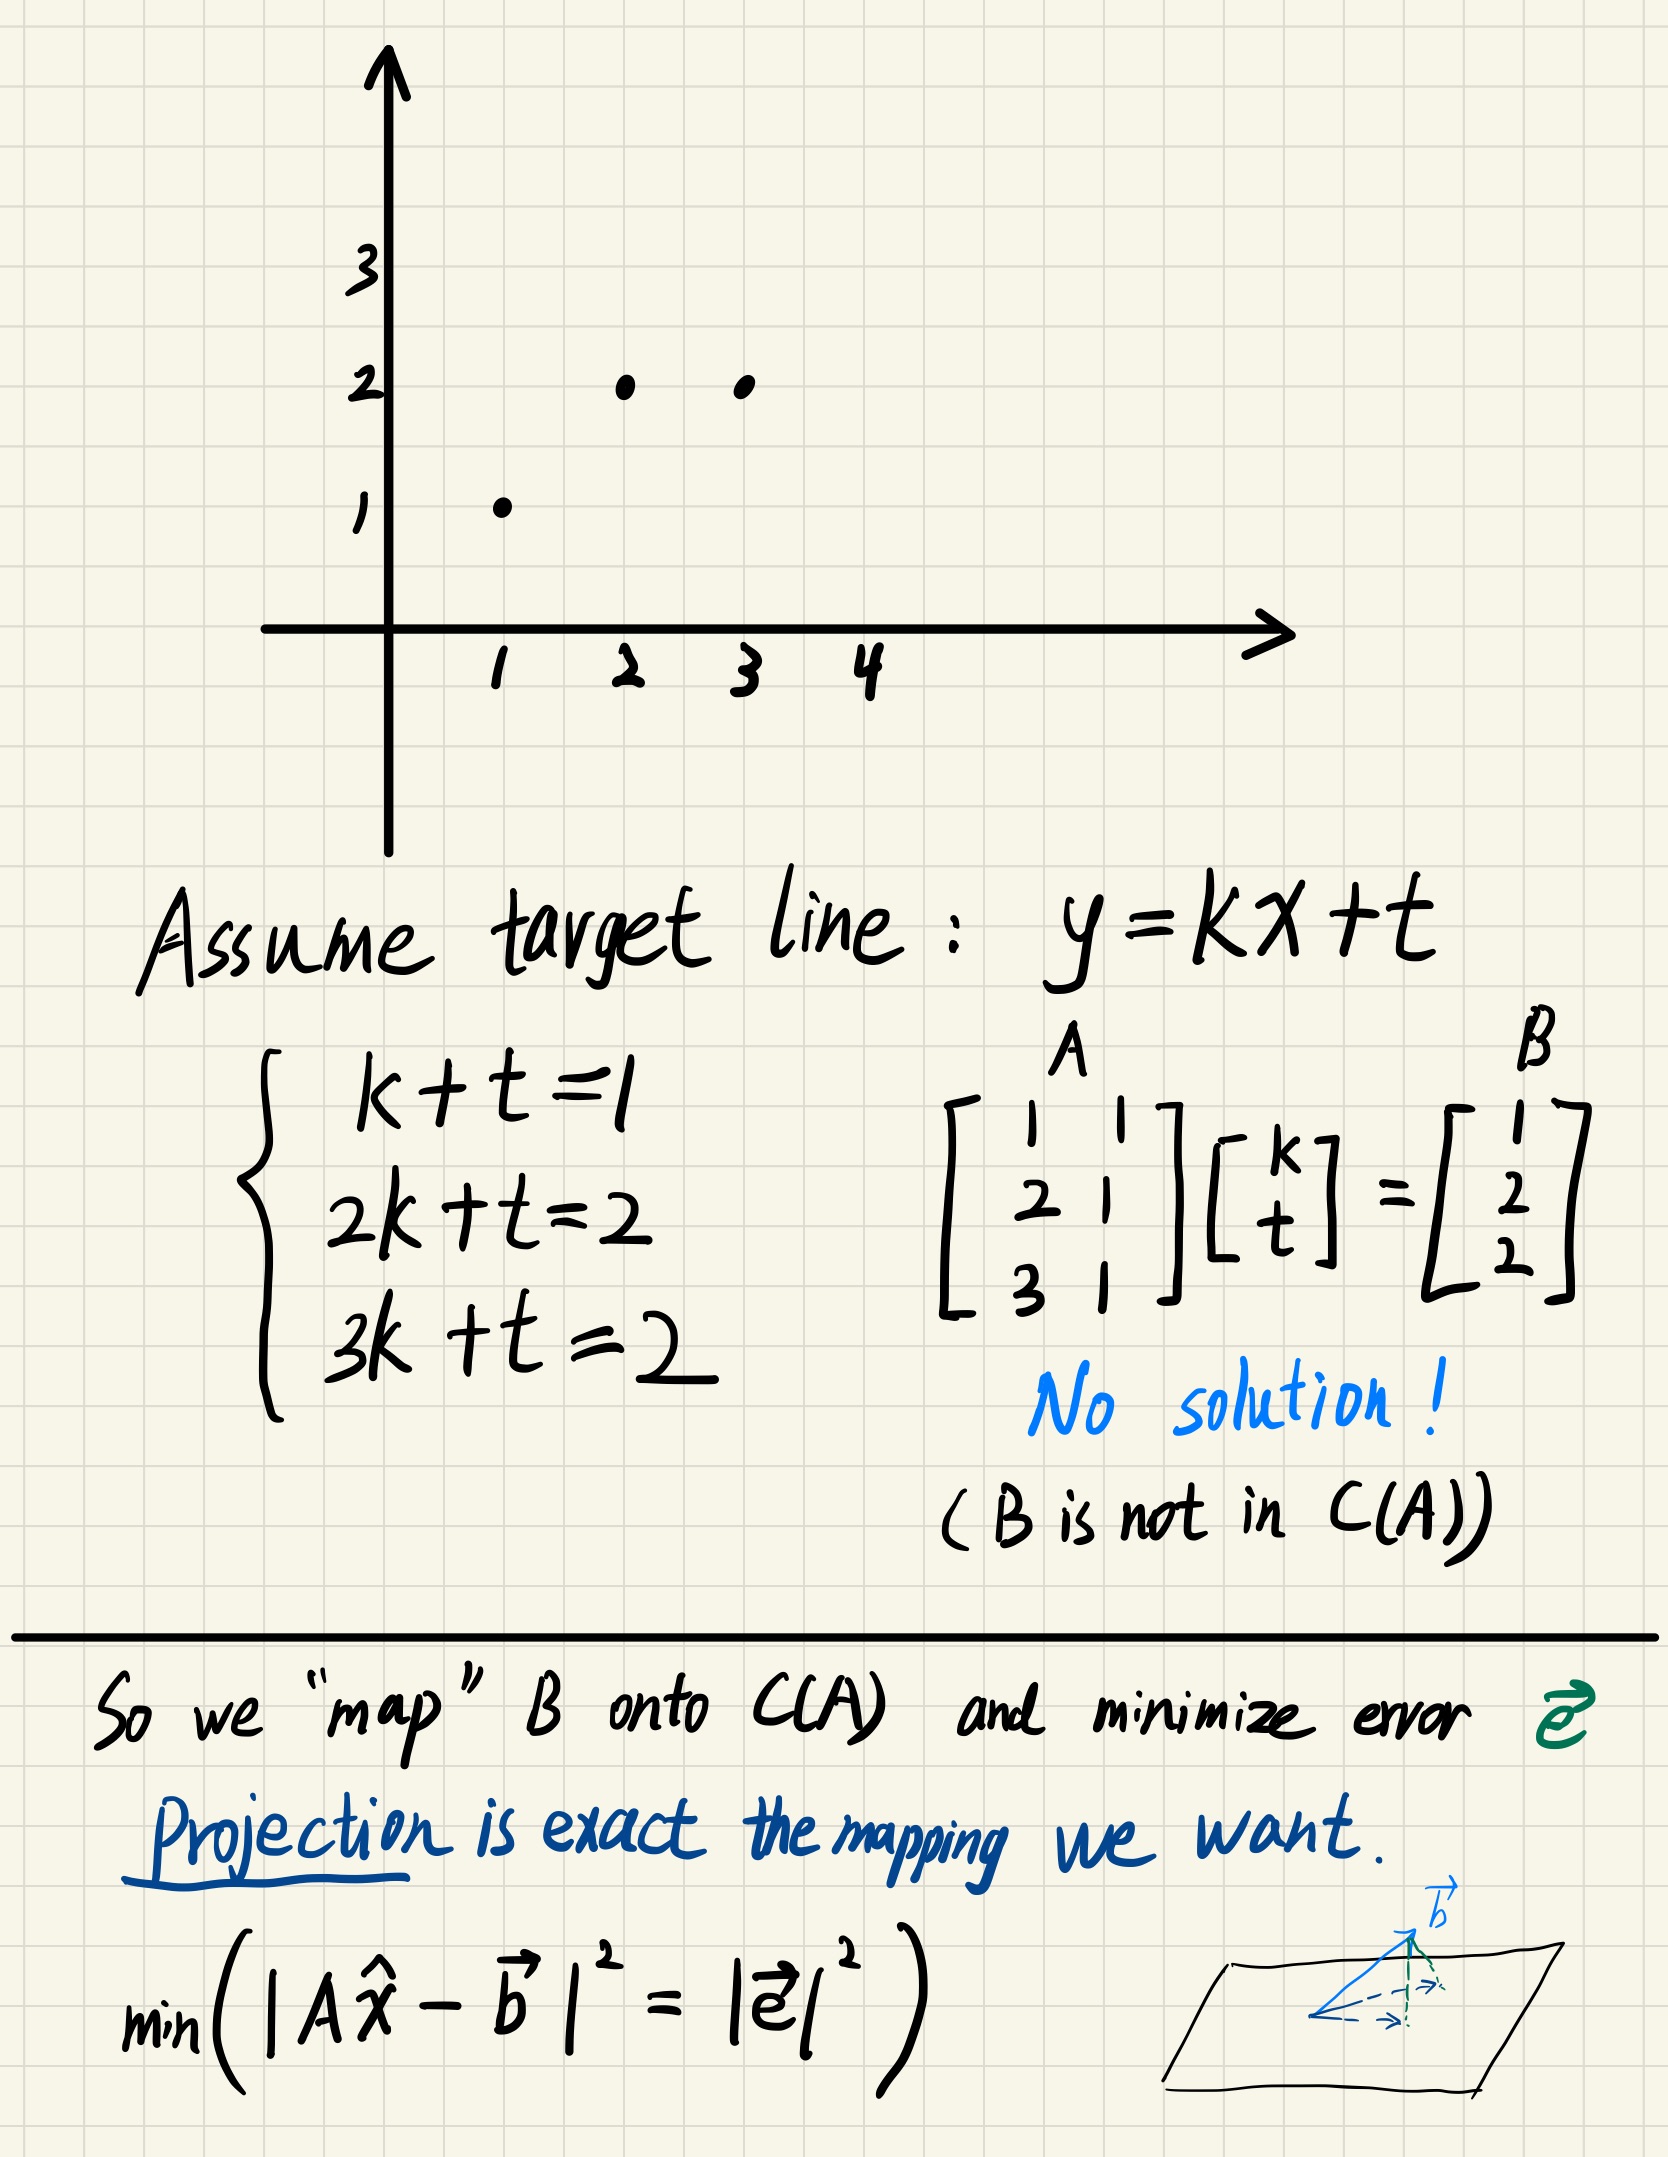 3
2
1
1 2 3 4
Assume target line : y = kx + t
k + t = 1
2k + t = 2
3k + t = 2
A B
[ 1 1
2 1
3 1 ] [ k
t ] = [ 1
2
2 ]
No solution !
( B is not in C(A))
So we "map" B onto C(A) and minimize error e⃗
Projection is exact the mapping we want.
min( | A x̂ − b⃗ |² = | e⃗ |² )
b⃗